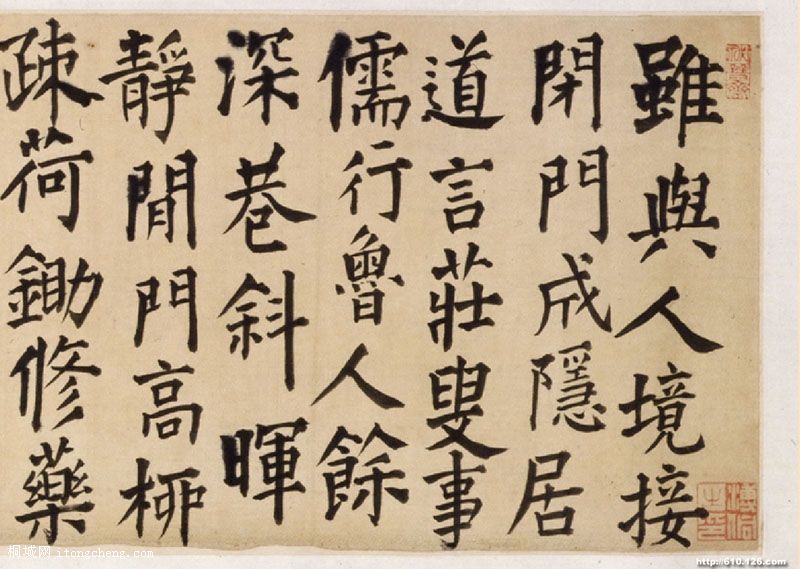 雖與人境接
閉門成隱居
道言莊叟事
儒行魯人餘
深巷斜暉
靜閒門高柳
疎荷鋤修藥
桐城网 itongcheng.com
http://610.126.com